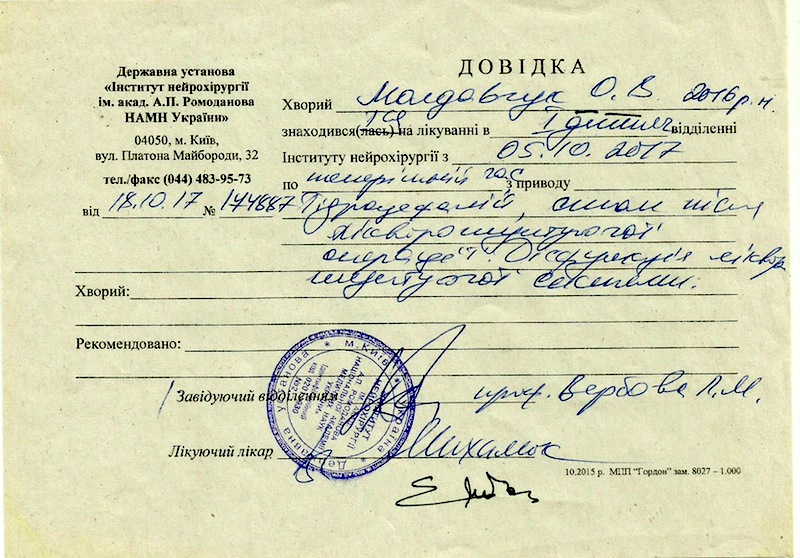 ДОВІДКА
Державна установа
«Інститут нейрохірургії
ім. акад. А.П. Ромоданова
НАМН України»
04050, м. Київ,
вул. Платона Майбороди, 32
тел./факс (044) 483-95-73
від 18.10.17 № 174887
Хворий Молдавчук О. В 2016 р.н.
знаходився(лась) на лікуванні в відділенні
Інституту нейрохірургії з 05.10.2017
по теперішній час з приводу
Гідроцефалій, стан після
лікворошунтуючої
операції. Дисфункція лікворо
шунтуючої системи.
Хворий:
Рекомендовано:
Завідуючий відділенням проф. Вербова Л.М.
Лікуючий лікар Михалюк
10,2015 р. МПП "Гордон" зам. 8027 – 1.000
Державна установа * м. Київ * Україна *